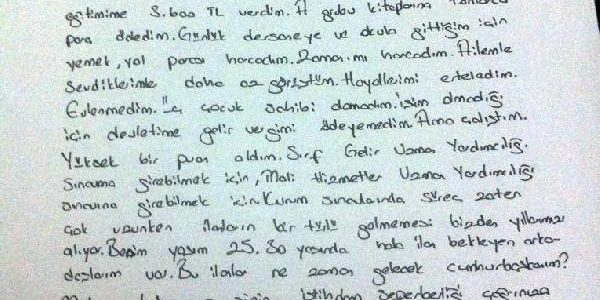 eğitimime 3.600 TL verdim. A grubu kitaplarına
para ödedim. Günlük dersaneye ve okula gittiğim için
yemek, yol parası harcadım. Zamanımı harcadım. Ailemle
Sevdiklerimle daha az görüştüm. Hayallerimi erteledim.
Evlenmedim. Üç çocuk sahibi olamadım. İşim olmadığı
için devletime gelir vergimi ödeyemedim. Ama çalıştım.
Yüksek bir puan aldım. Sırf Gelir Uzman Yardımcılığı
Sınavına girebilmek için, Mali Hizmetler Uzman Yardımcılığı
sınavına girebilmek için. Kurum sınavlarında süreç zaten
çok uzunken ilanların bir türlü gelmemesi bizden yıllarımızı
alıyor. Benim yaşım 25. 30 yaşında hala ilan bekleyen arka-
daşlarım var. Bu ilanlar ne zaman gelecek cumhurbaşkanım?
istihdam seferberliği